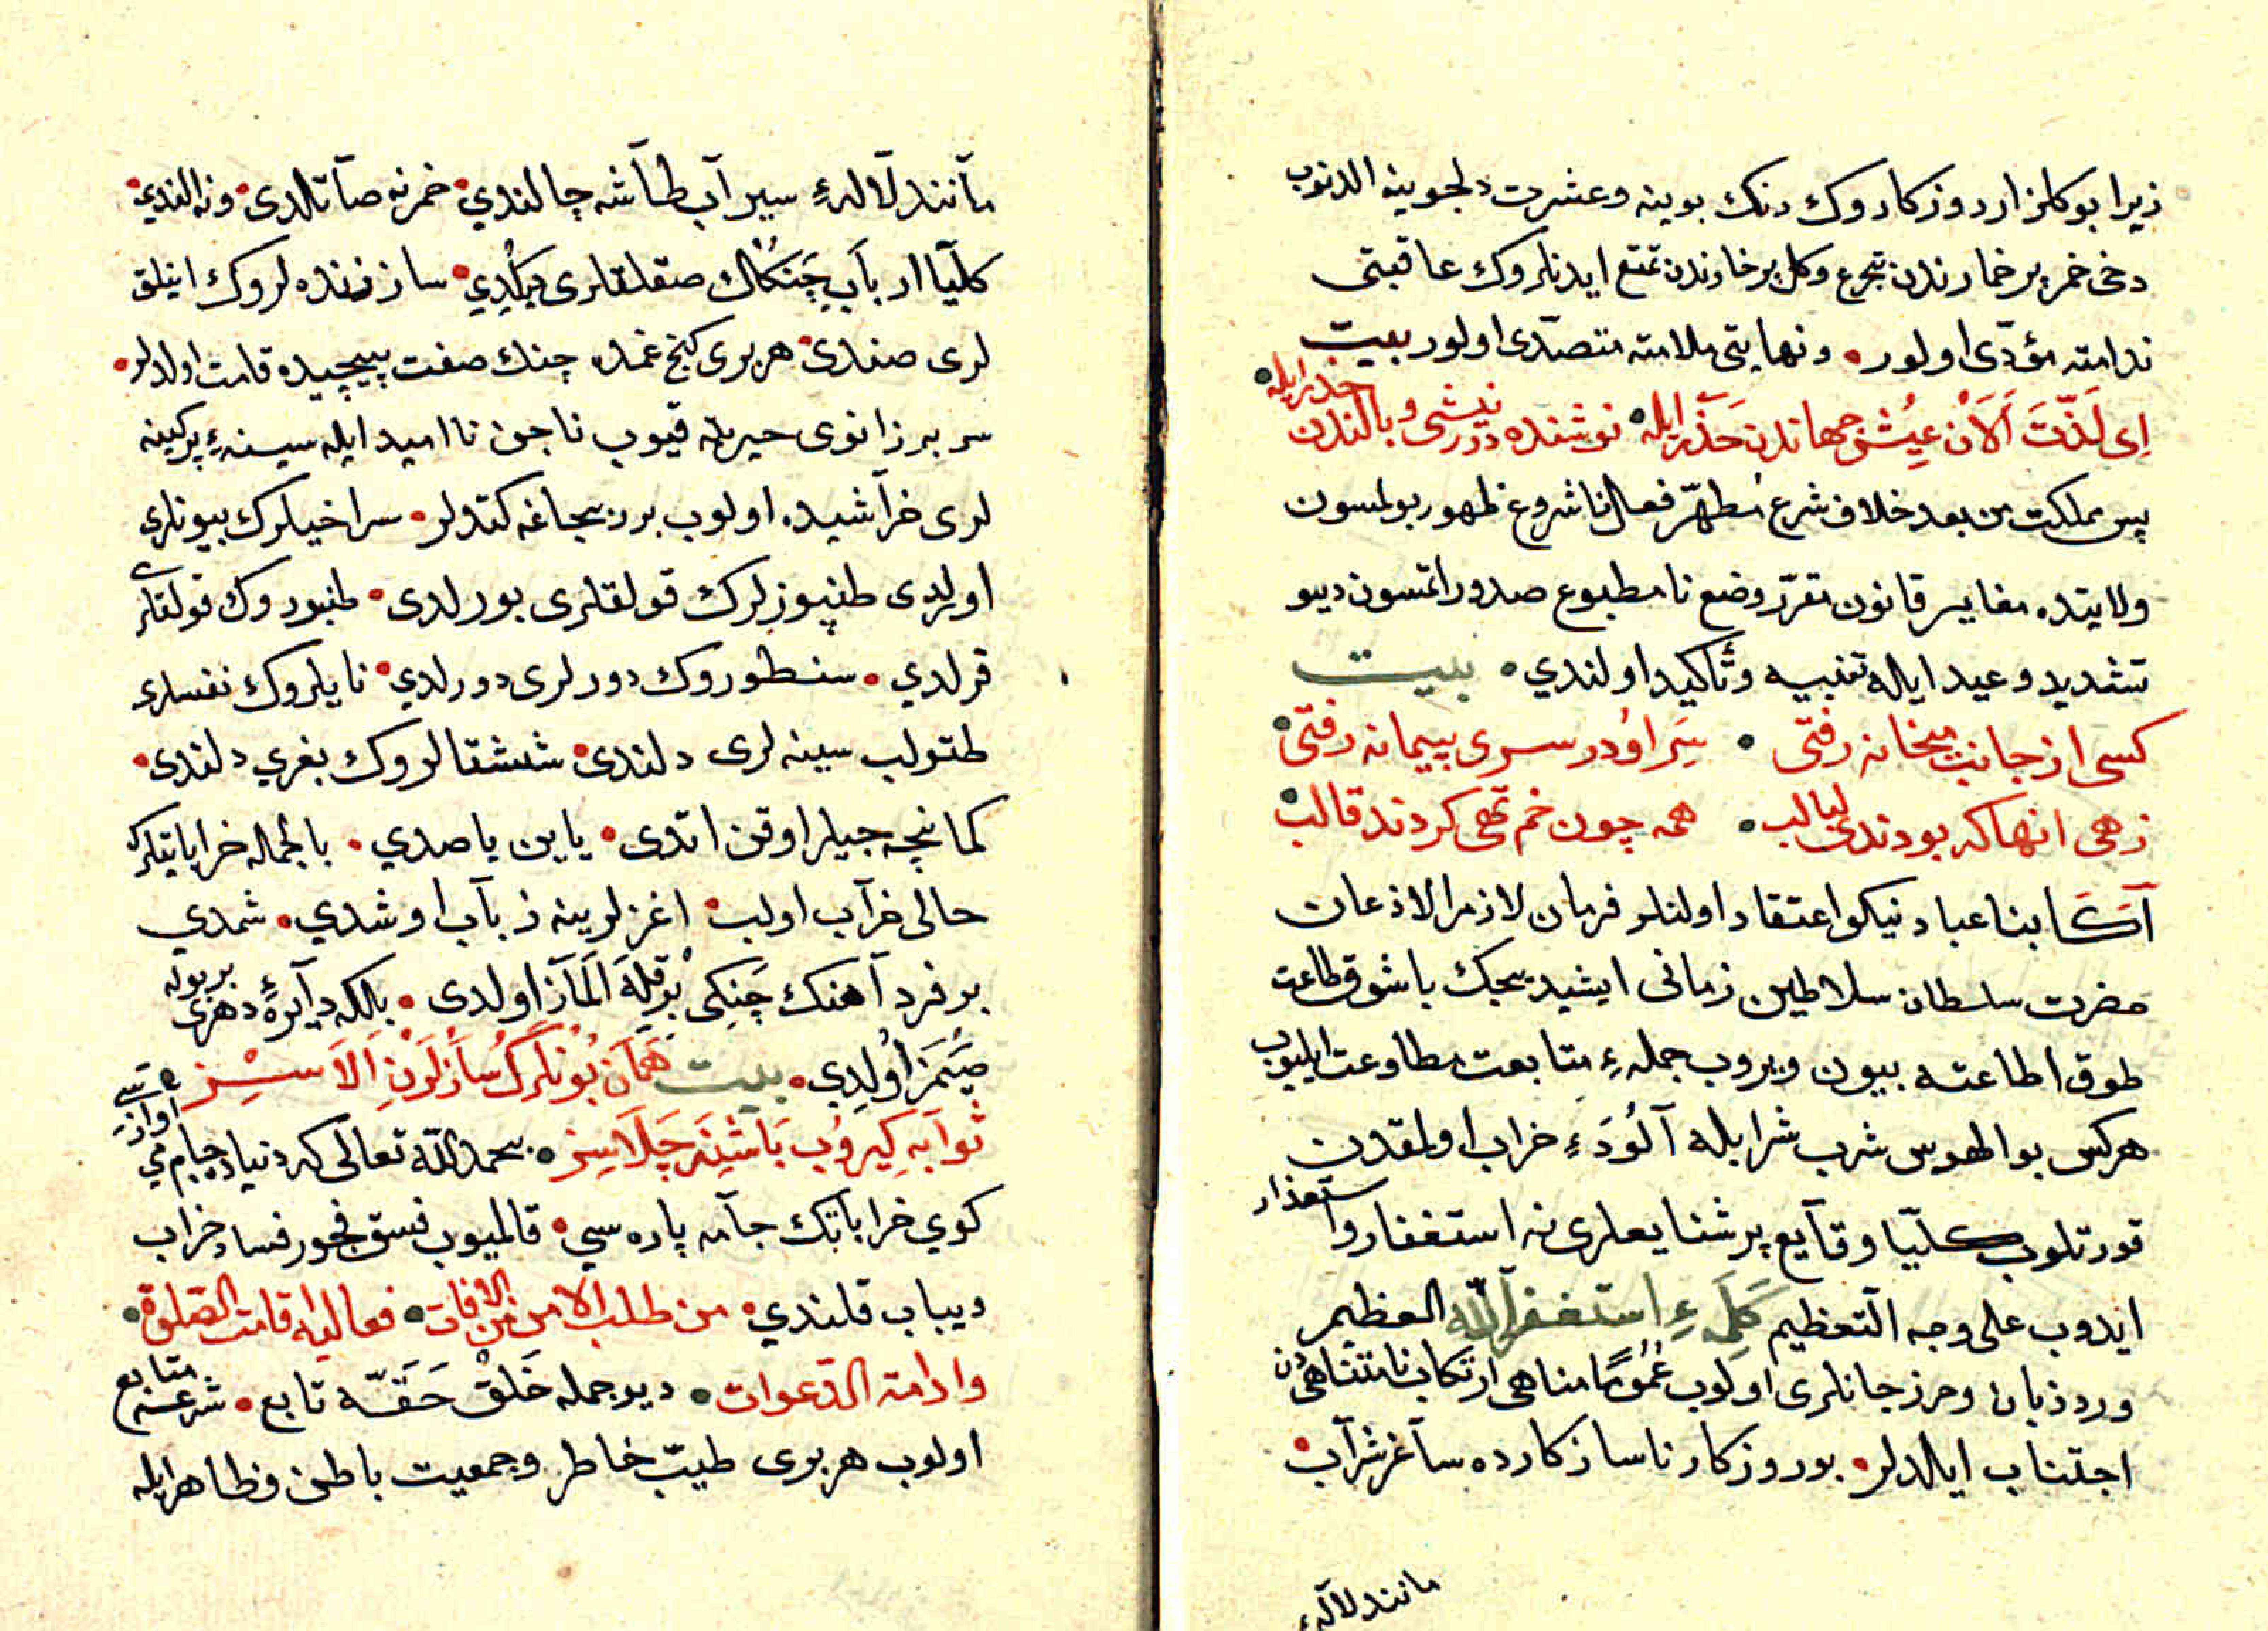 زیرا بو کلزار روزکاروك رنك بوینه وعشرت دلجوینه الدنوب
دخی خمر پر خمارندن تجرع وکل پر خارندن تمتع ایدنلروك عاقبتی
ندامته مؤدّی اولور • ونهایتی ملامته متصدّی اولور بیت
اِی لَذّت اَلاَن عیش جهاندن حَذَر ایله • نوشنده درر نیشی و بالندن حذر ایله •
پس مملکت من بعد خلاف شرع مُطهّر فعال ناشروع ظهور بولمسون
ولایتده مغایر قانون مقرّر وضع نامطبوع صدور اتمسون دیو
تشدید وعید ایله تنبیه وتأکید اولندي • بیت
کسی از جانب میخانه رفتی • سَر اُو در سری پیمانه رفتی •
زهی انهاکه بودندی لبالب • همه چون خم تهی کردند قالب •
آکَا بنا عباد نیکو اعتقاد اولنلر فرمان لازم الاذعان
حضرت سلطان سلاطین زمانی ایشیدیجك باشوق طاعت
طوق اطاعته بیون ویروب جمله ءِ متابعت مطاوعت ایلیوب
هرکس بو الهوس شرب شرابله آلُودَه ءِ خراب اولمقدن
قورتلوب کلیّا وقآیع پر شنایعلری نه استغفار و استعذار
ایدوب علی وجه التعظیم کَلمَه ءِ استغفر اللّه العظیم
ورد زبان وحرز جانلری اولوب عُمُومًا مناهی ارتکاب نامتناهیدن
اجتناب ایلدلر • بو روزکار ناسازکارده ساغر شرآب •
مانند لآله ءِ
مآنند لآله ءِ سیرآب طآشه چالندي • خمر نه صآتلدی • ونه الندي •
کلیّا ارباَبِ چَنكُاك صقلقلری یکلِدي • سازنده لروك اینلق
لری صندی • هر بری کنج غمده چنك صفت پیچیده قامت اولدلر •
سر بر زانوی حیرته قیوب ناجن نا امید ایله سینه ءِ پر کینه
لری خرآشیده اولوب بر بجاغه کتدلر • سراخیلرك بیونلری
اورلدی طنبوزلرك قولقلری بورلدی • طنبوروك قولقلری
قرلدي • سنطوروك دورلری دورلدي • نایلروك نفسلری
طتولب سینه لری دلندی • ششتالروك بغري دلندی •
کمانچه جیلر اوقن اتدی • یاین یاصدي • بالجمله خراباتیلرك
حالی خرآب اولب • اغزلرینه ذبآب اوشدي • شمدي
بر فرد آهنك چَنکِی بُرقلَه اَلمَاَز اولدی • بلکه دآیرهٔ دهری بر بوله
صیَمَز اُولِدي • بیت هَمَان بُونلرك سَازلَرِنِ اَلاَسسِز
ثوآبه کِیروُب بَاشِنَه چَلاَسِز • بحمد اللّه تعالی که دنیاده جام می اوازه سی
کوي خراباتك جآمه پاره سي • قالمیوب فسق فجور فساد خراب
دیباب قلندي • من طلب الامن من الافات • فعالیه اقامت الصّلوة •
وادامة الدّعوات • دیو جمله خَلق حَقّه تابع • شرعه متابع
اولوب هر بری طیّب خاطر وجمعیت باطن وظاهر ایله